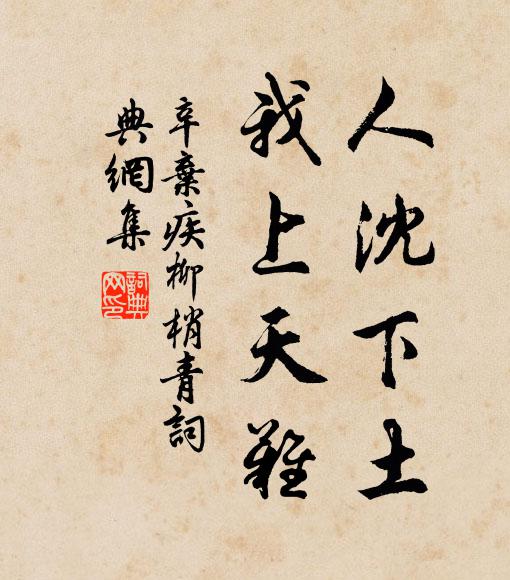 人沈下土
我上天難
辛棄疾柳梢青詞
典網集
詞典网印